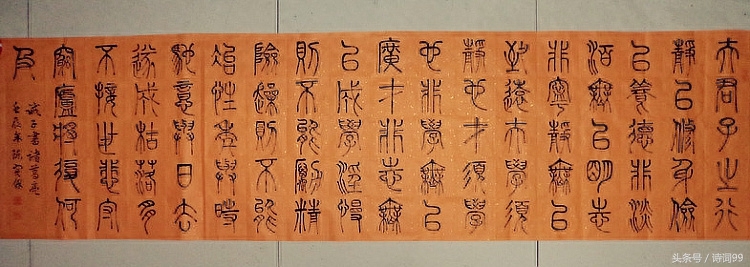 夫君子之行
靜以修身儉
以養德非淡
泊無以明志
非寧靜無以
致遠夫學須
靜也才須學
也非學無以
廣才非志無
以成學淫慢
則不能勵精
險躁則不能
冶性年與時
馳意與日去
遂成枯落多
不接世悲守
窮廬將復何
及
誡子書諸葛亮
壬辰年
头条号 / 诗词99